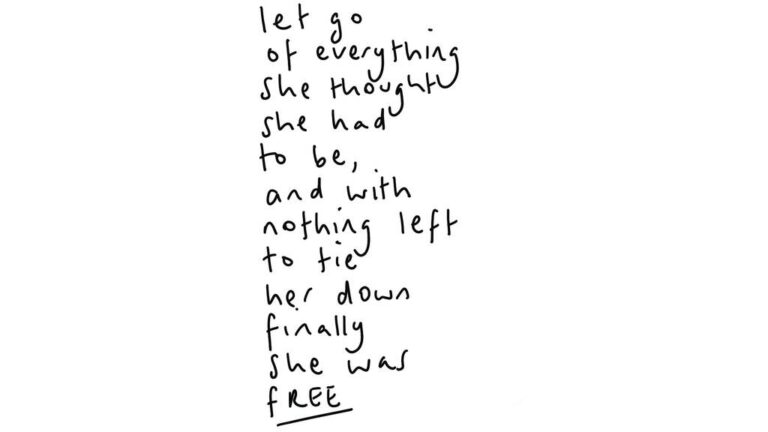 let go
of everything
she thought
she had
to be,
and with
nothing left
to tie
her down
finally
she was
fREE